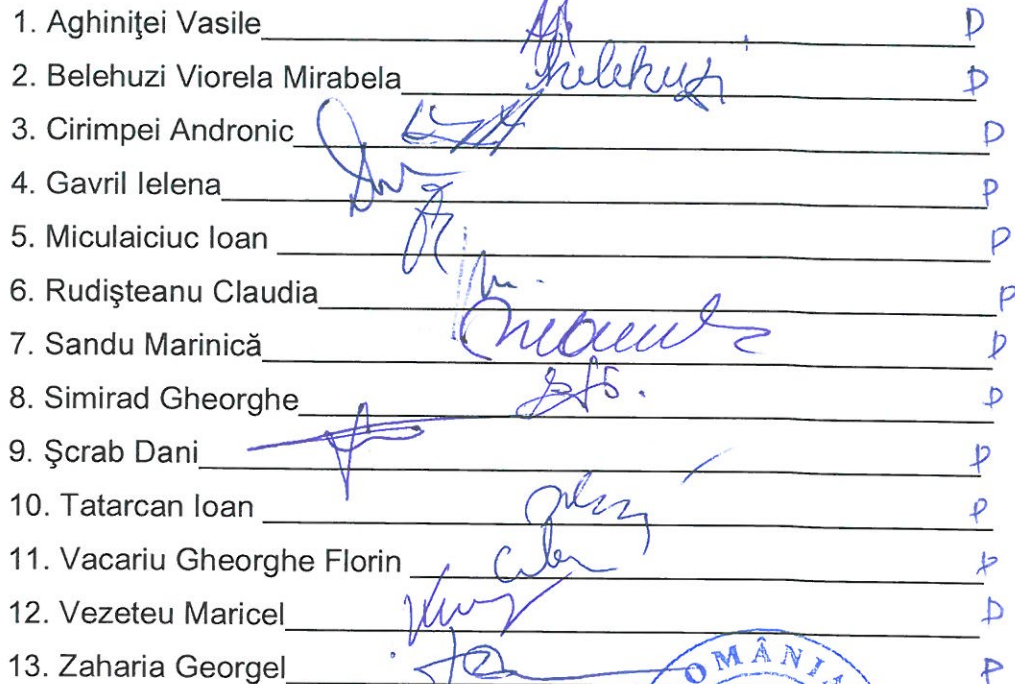 1. Aghiniţei Vasile P
2. Belehuzi Viorela Mirabela Belehuzi P
3. Cirimpei Andronic P
4. Gavril Ielena P
5. Miculaiciuc Ioan P
6. Rudişteanu Claudia P
7. Sandu Marinică P
8. Simirad Gheorghe P
9. Şcrab Dani P
10. Tatarcan Ioan P
11. Vacariu Gheorghe Florin P
12. Vezeteu Maricel P
13. Zaharia Georgel P
ROMÂNIA